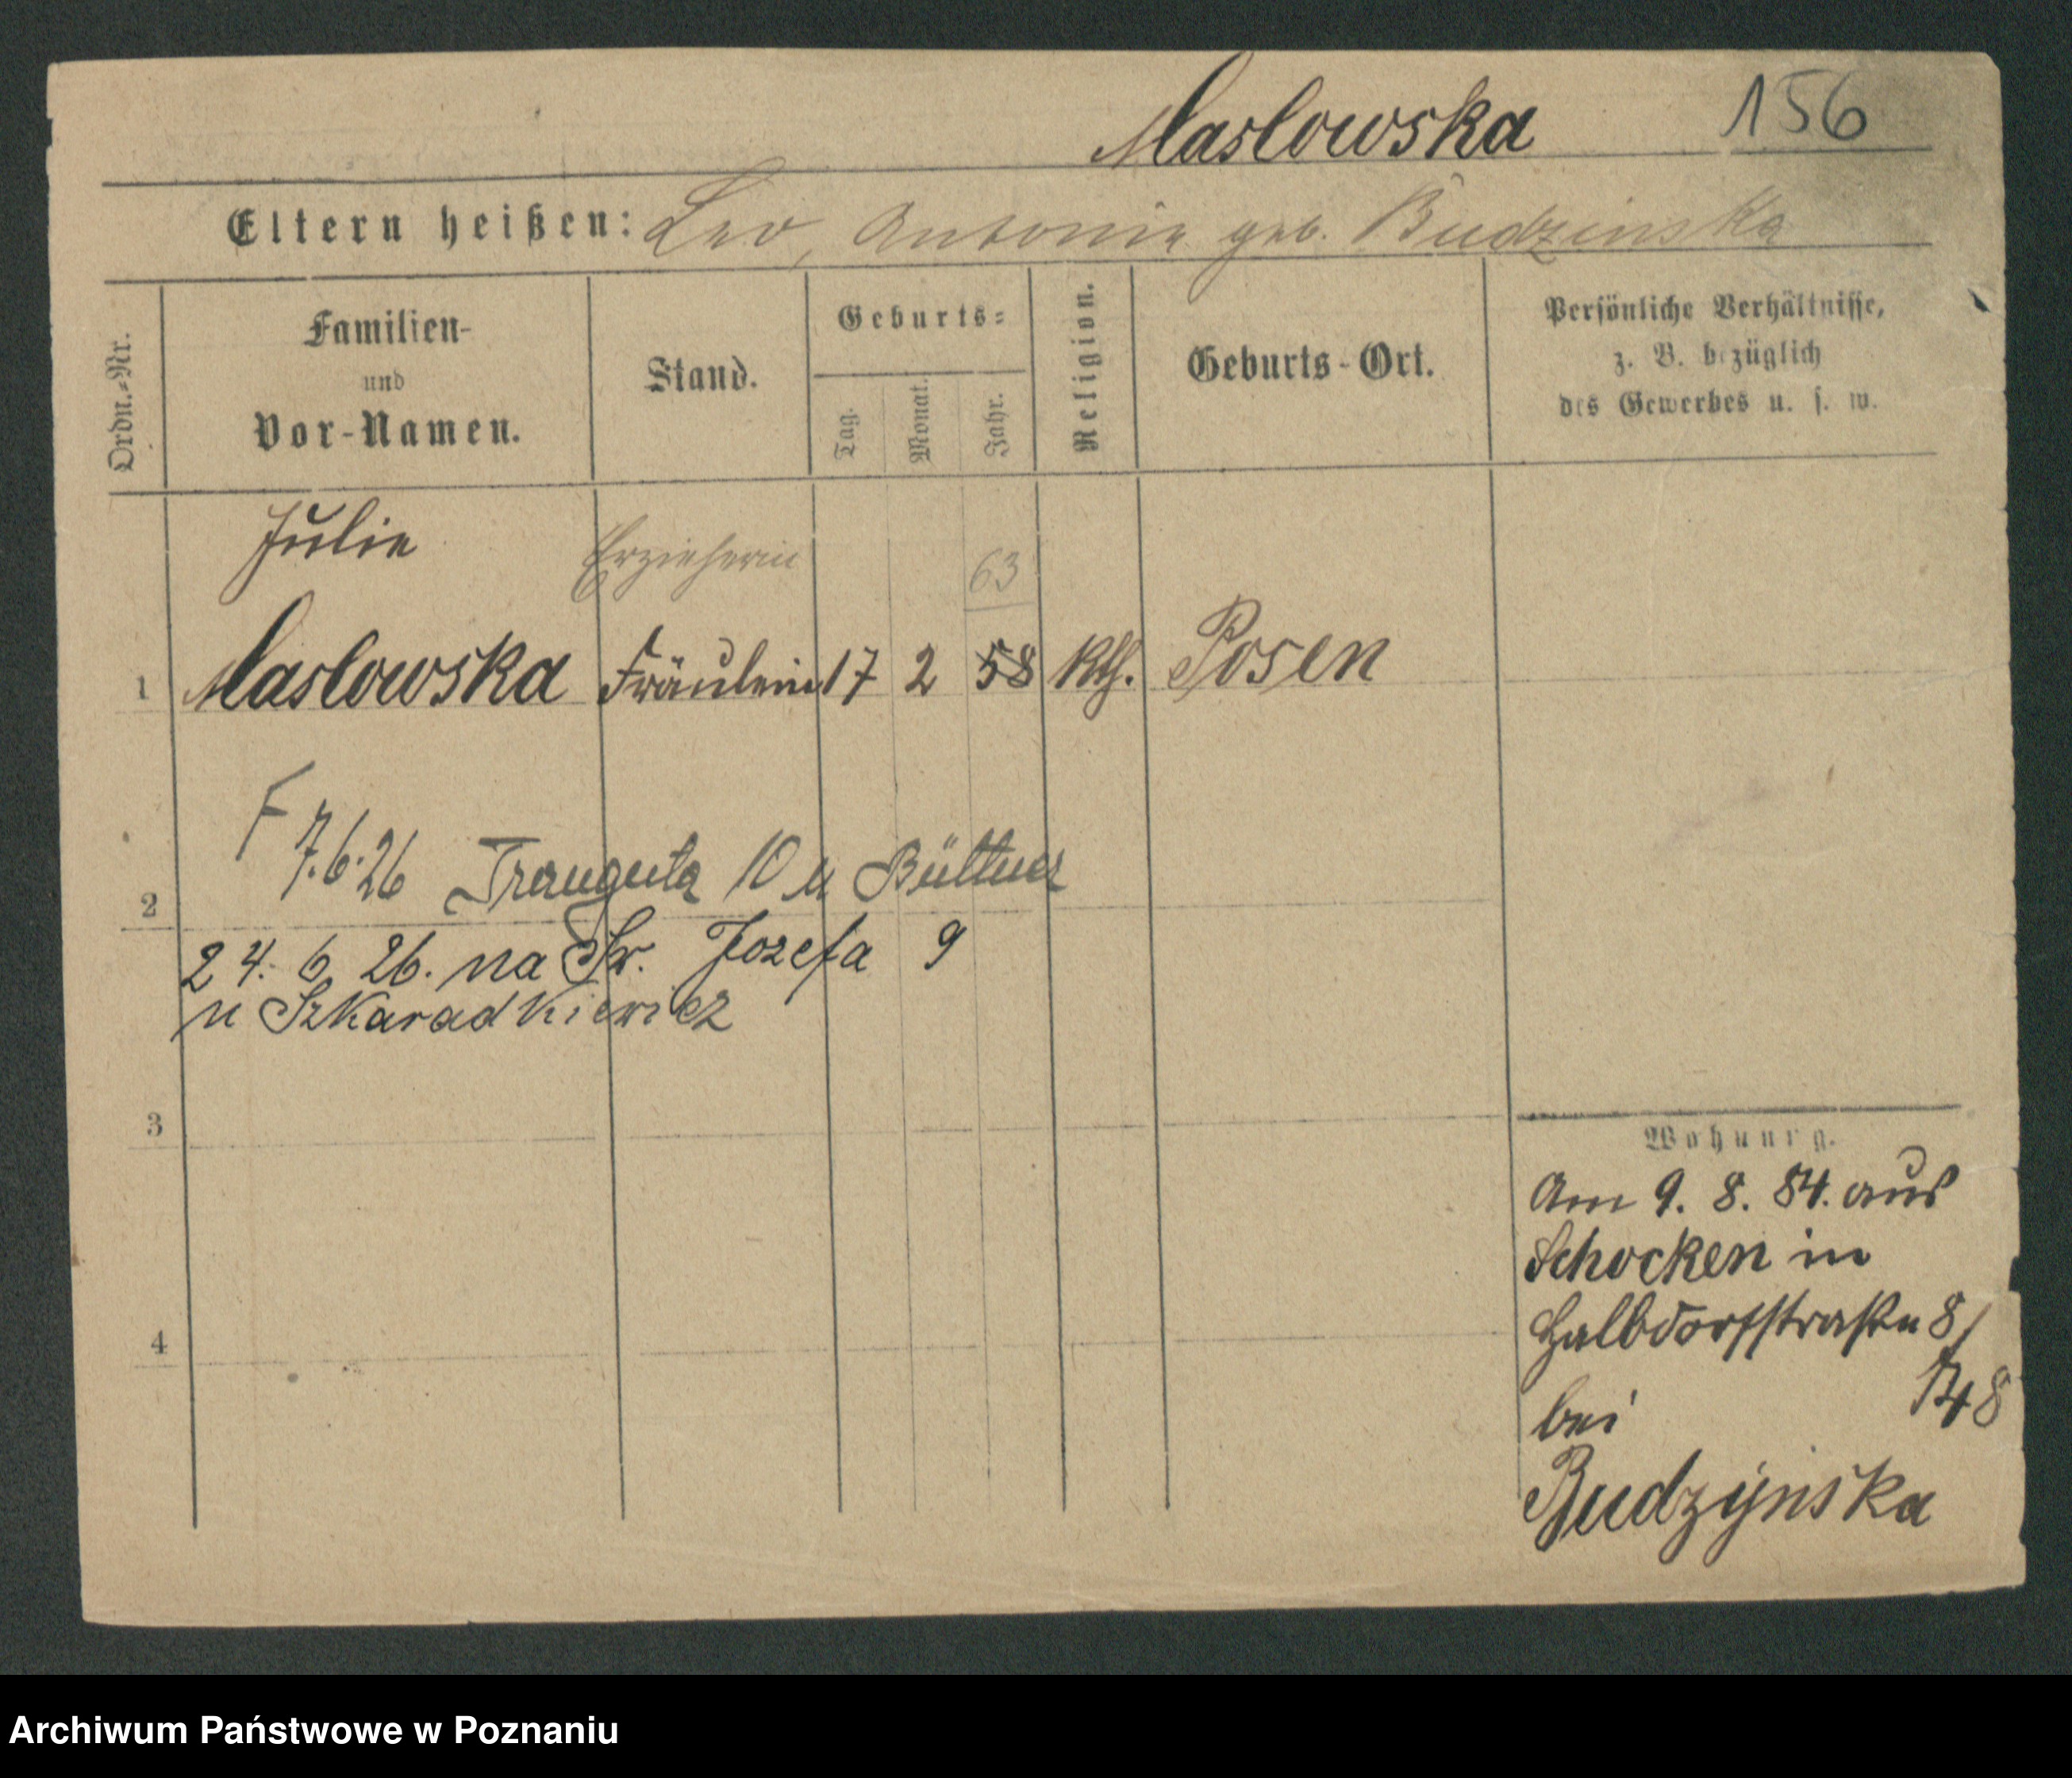 Maslowska 156
Eltern heißen: Leo, Antonie geb. Budzinska
Ordn.-Nr.
Familien-
und
Vor-Namen.
Stand.
Geburts-
Tag.
Monat.
Jahr.
Religion.
Geburts-Ort.
Persönliche Verhältnisse,
z. B. bezüglich
des Gewerbes u. s. w.
Julie Erzieherin 63
1 Maslowska Fräulein 17 2 58 kth. Posen
7.6.26 Trauguta 10 u Büttner
2
24. 6 26. na Św. Józefa 9
u Szkaradkiewicz
3
Wohnung.
Am 9. 8. 84. aus
Schocken in
Halbdorfstraße 8/
4
bei
Budzynska
Archiwum Państwowe w Poznaniu